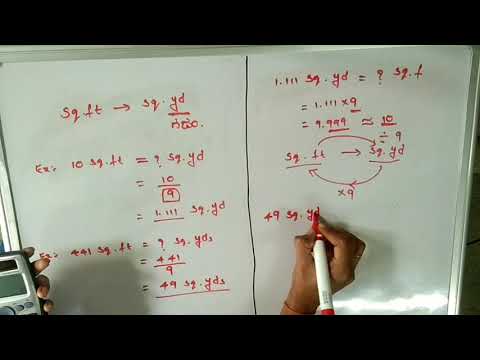 Sq ft → Sq. yd
గజం.
Ex:- 10 sq.ft = ? sq.yd
= 10
9
= 1.111 sq.yd
Ex:- 441 sq.ft = ? sq.yds
= 441
9
= 49 sq.yds
1.111 sq.yd = ? sq.f
= 1.111 × 9
= 9.999 ≈ 10
÷ 9
Sq.ft → Sq.yd
×9
49 sq.yd